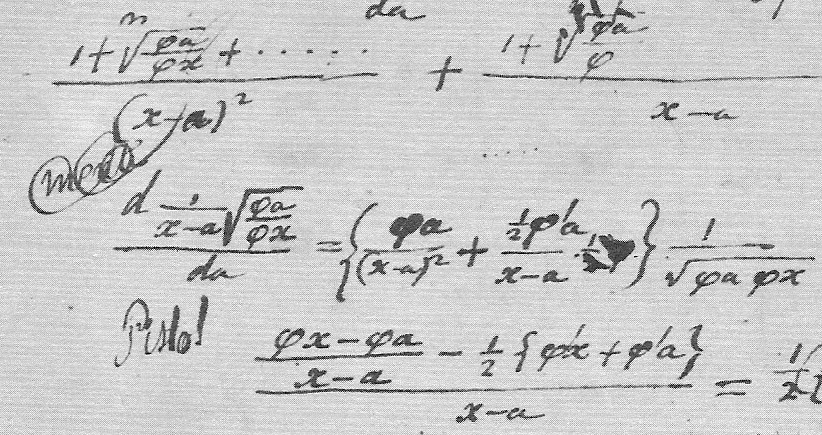 da
1 + ⁿ√(φa/φx) + ..... / (x-a)² + 1 + √(φa/φ) / x-a
.....
d 1/(x-a) √(φa/φx) / da = { φa/(x-a)² + ½φ'a/(x-a) } 1/√(φa φx)
(φx - φa)/(x-a) - ½{φ'x + φ'a} / x-a =